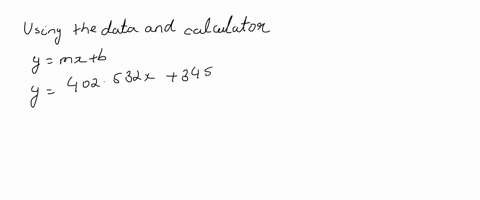 Using the data and calculator
y = mx+b
y = 402.532x + 345